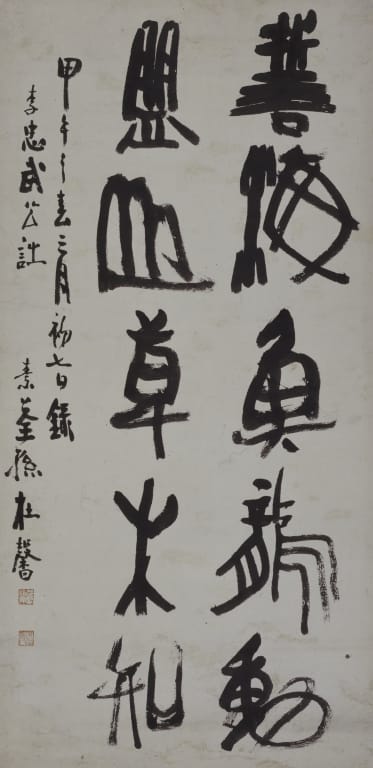 誓海魚龍動
盟山草木知
甲午之春三月初七日錄
李忠武公詩 素荃孫在馨